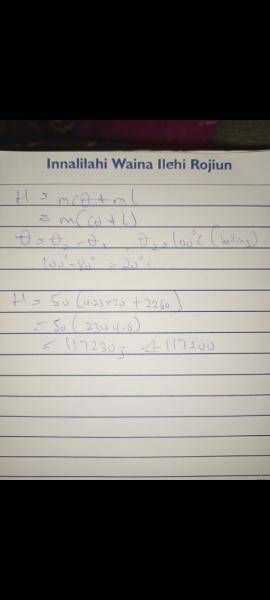 Innalilahi Waina Ilehi Rojiun
H = mcθ + mL
= m(cθ + L)
θ = θ₂ - θ₁, θ₂ = 100°C (boiling)
100° - 80° = 20°c
H = 50 (4.23x20 + 2260)
= 50 (2344.6)
= 117230J ≏ 117200